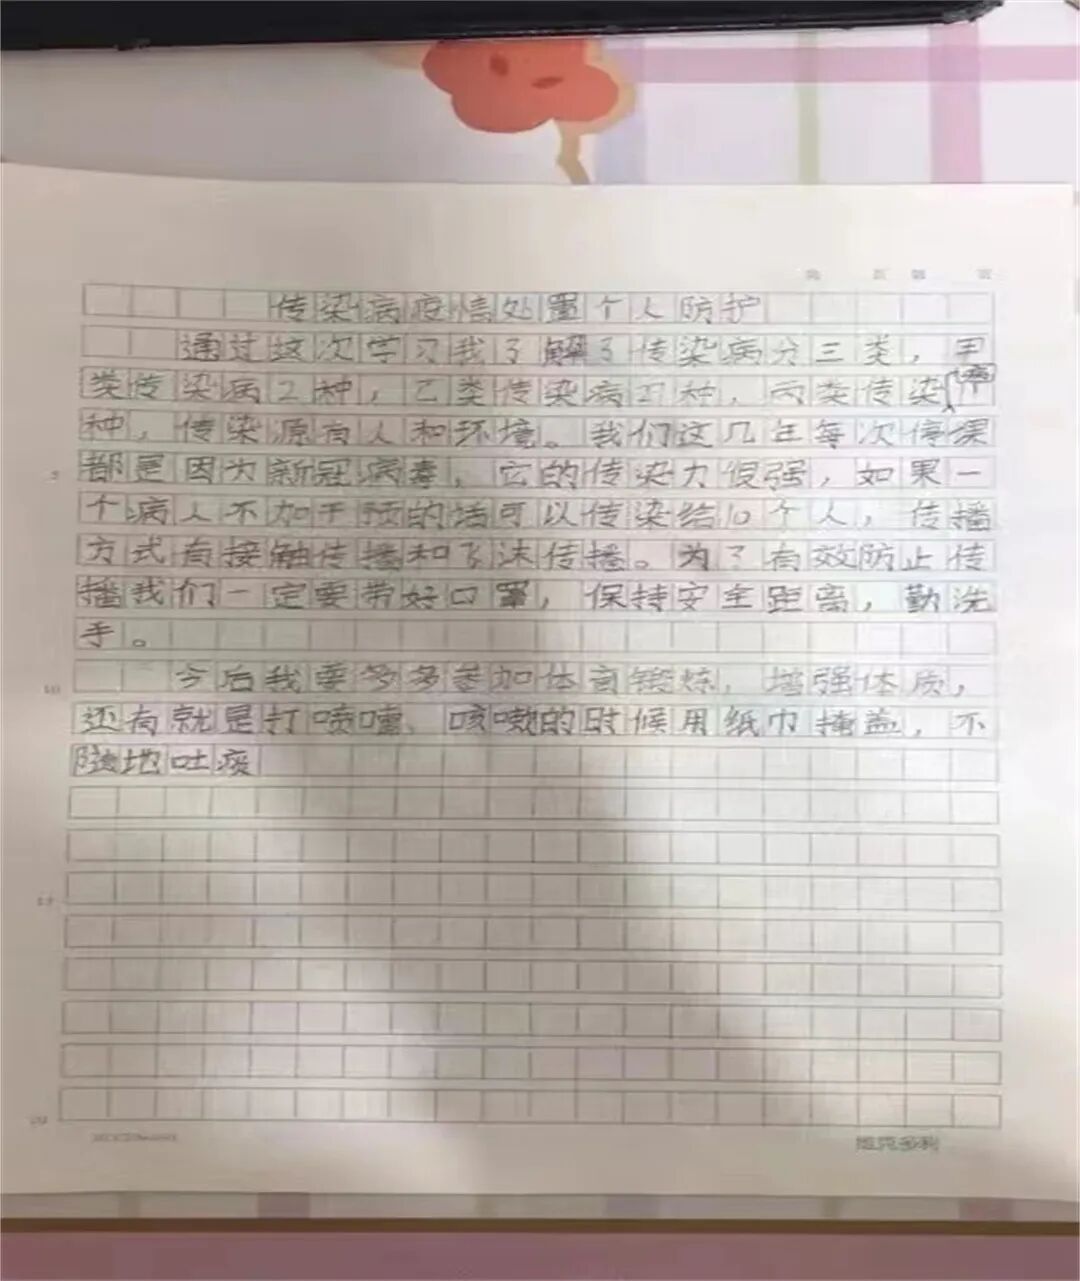 传染病疫情处置个人防护
通过这次学习我了解了传染病分三类，甲
类传染病2种，乙类传染病27种，丙类传染病
种，传染源有人和环境。我们这几年每次停课
都是因为新冠病毒，它的传染力很强，如果一
个病人不加干预的话可以传染给10个人，传播
方式有接触传播和飞沫传播。为了有效防止传
播我们一定要带好口罩，保持安全距离，勤洗
手。
今后我要多多参加体育锻炼，增强体质，
还有就是打喷嚏、咳嗽的时候用纸巾掩盖，不
随地吐痰